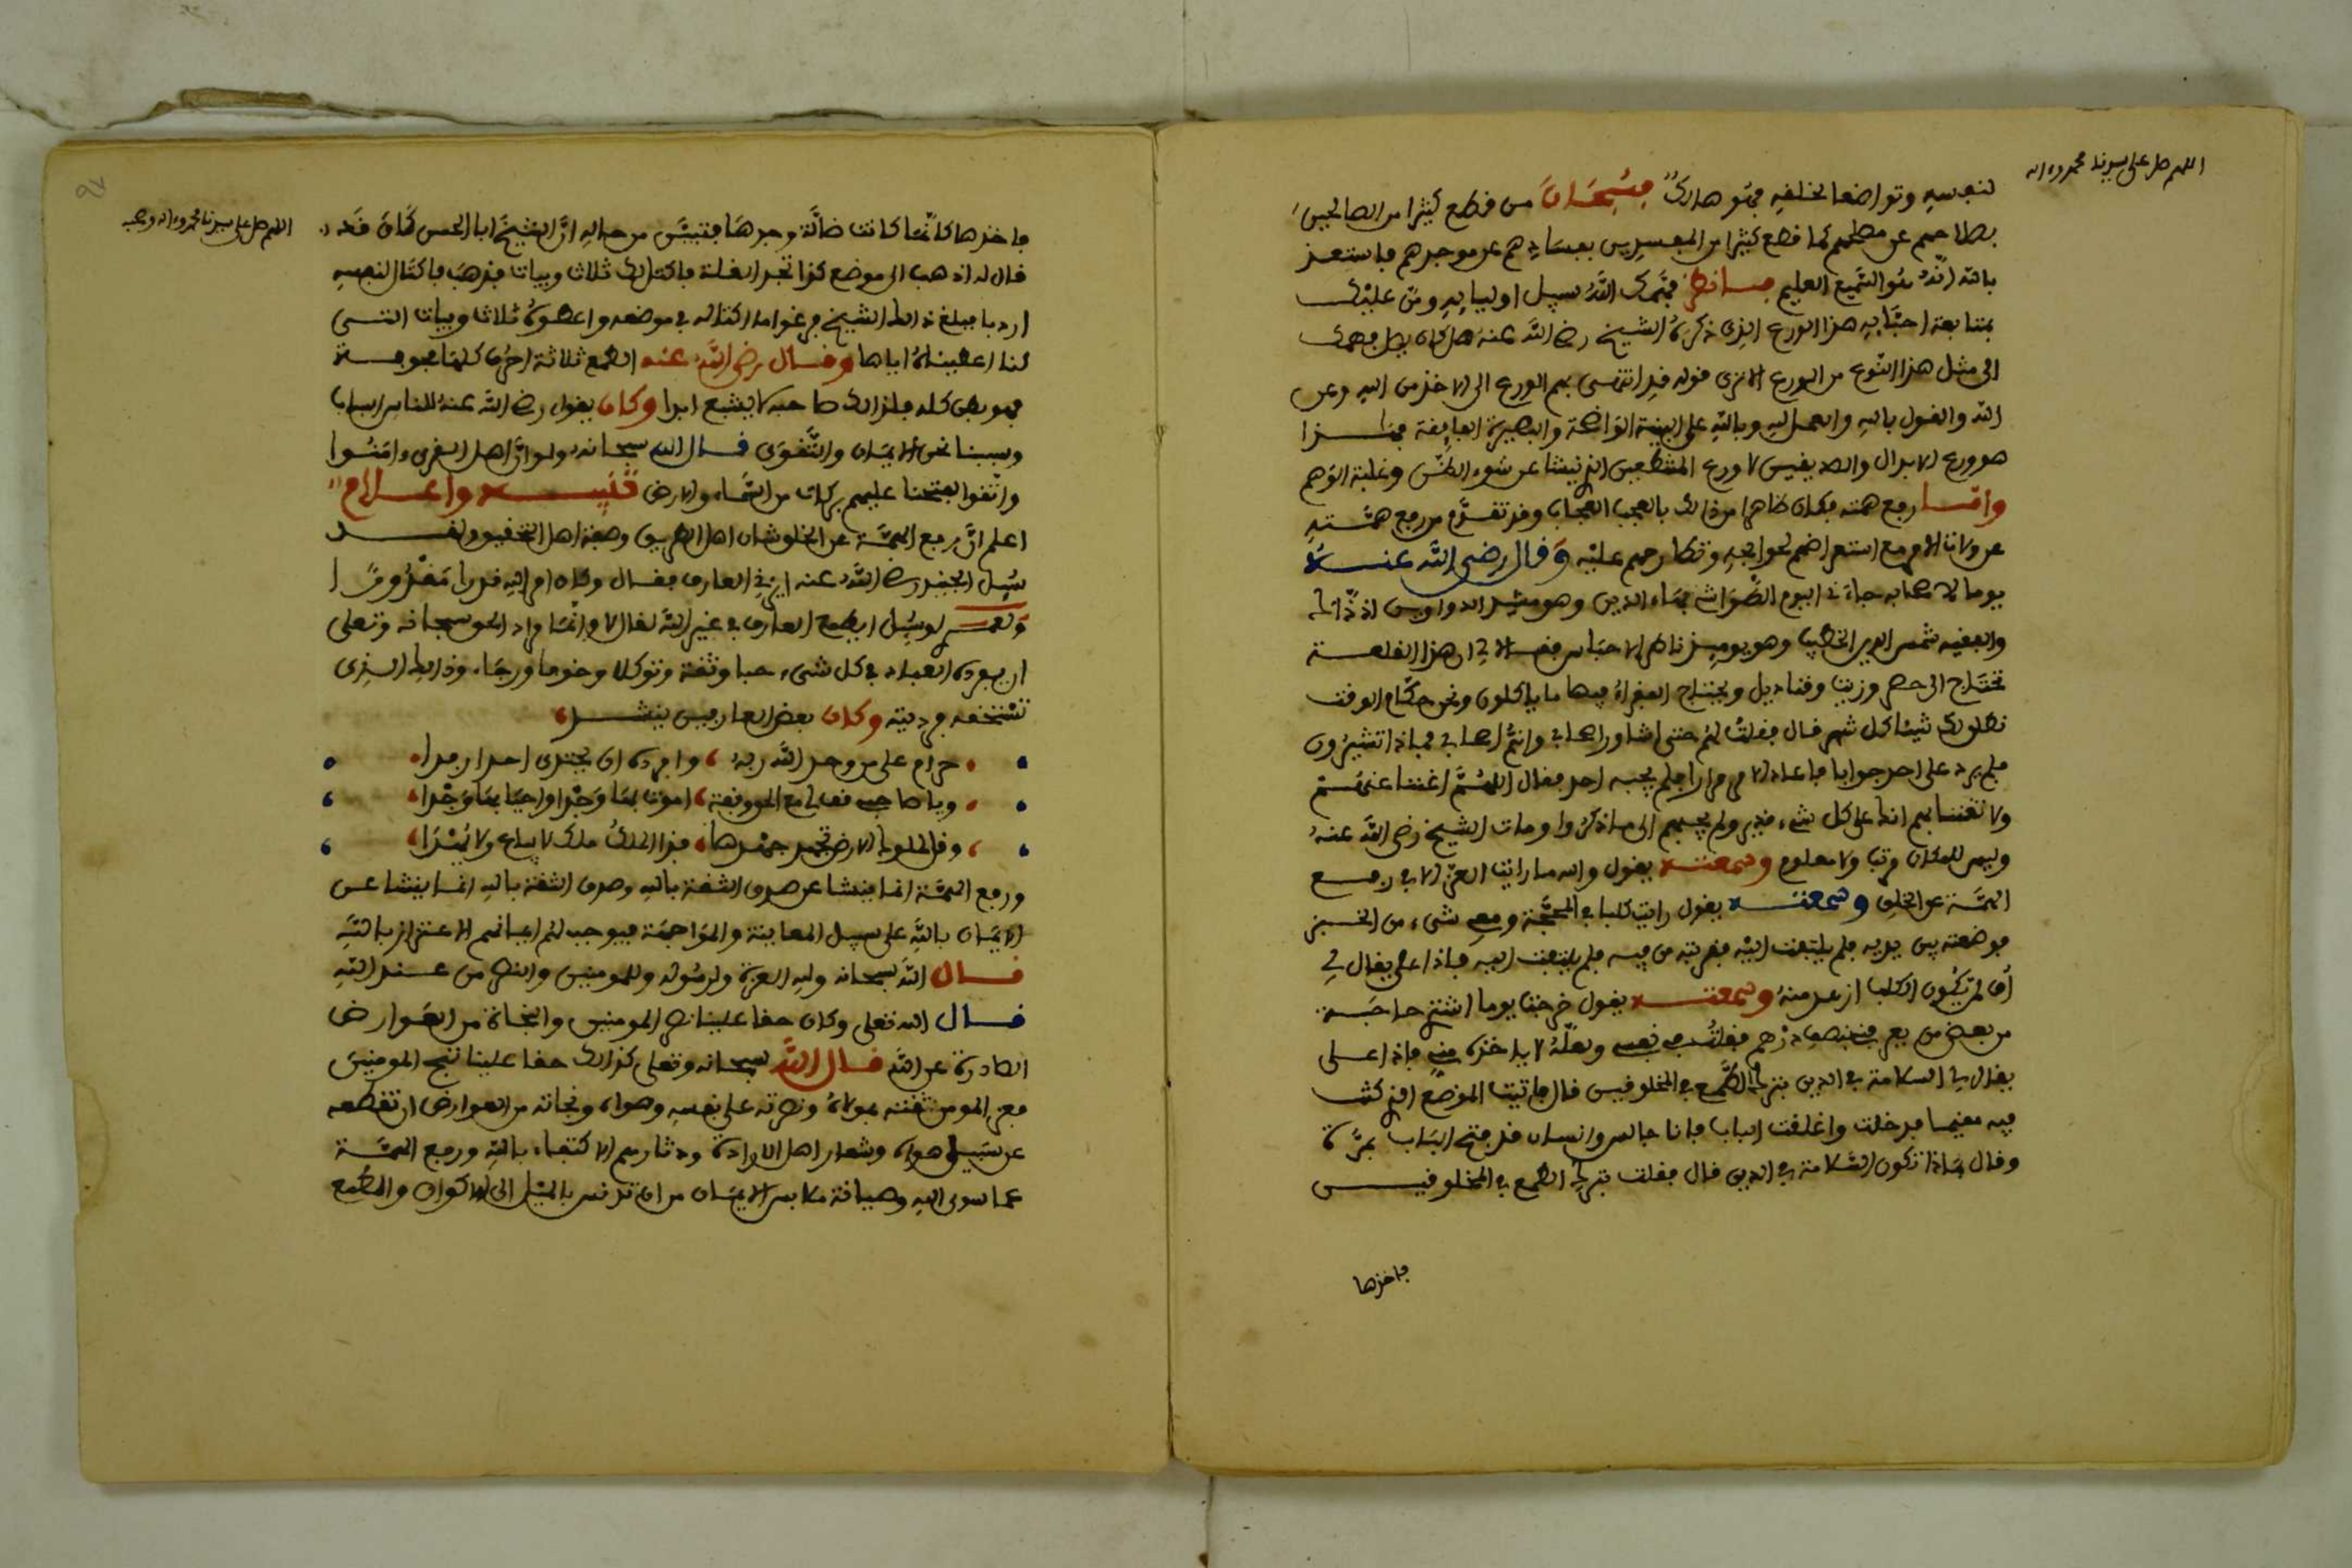 اللهم صل على سيدنا محمد وءاله
لنفسه وتواضعا لخلفه فهو هالك فسبحان من قطع كثيرا من الصالحين
بصلاحهم عن مصلحهم كما قطع كثيرا من المفسدين بفسادهم عن موجدهم فاستعذ
بالله انه هو السميع العليم فانظر فهمك الله سبيل اوليايه ومن عليك
بمتابعة احبايه هذا الورع الذي ذكره الشيخ رضي الله عنه هل كان يصل فهمك
الى مثل هذا النوع من الورع الا ترى قوله قد انتهى بهم الورع الى الاخذ من الله وعن
الله والقول بالله والعمل لله وبالله على البينة الواضحة والبصيرة الفايقة فهذا
هو ورع الابدال والصديقين لا ورع المتنطعين الذي ينشا عن سوء الظن وغلبة الوهم
واما رفع همته فكان ظاهرا من ذلك بالعجب العجاب وقد تقدم من رفع همته
عن ولاة الامر مع استعراضهم لحوايجه وتطارحهم عليه وقال رضي الله عنه
يوما لاصحابه جاءني اليوم الطواشي بهاء الدين وهو مشد الدواوين اذ ذاك
والفقيه شمس الدين الخطيب وهو يوميذ ناظر الاحباس فقالا لي ان هذه القلعة
تحتاج الى حصر وزيت وقناديل ويحتاج الفقراء فيها ما ياكلون ونحن حكام الوقت
نطلق لك شيئا كل شهر قال فقلت لهم حتى اشاور اصحابي وانتم اصحابي فماذا تشيرون
فلم يرد على احد جوابا فاعاد الامر مرارا فلم يجبه احد فقال اللهم اغننا عنهم
ولا تغننا بهم انك على كل شيء قدير ولم يجبهم الى ما ذكروا ومات الشيخ رضي الله عنه
وليس للمكان مرتب ولا معلوم وسمعته يقول والله ما رايت العز الا في رفع
الهمة عن الخلق وسمعته يقول رايت كلبا في المحجة ومعي شيء من الخبز
فوضعته بين يديه فلم يلتفت اليه فقربته من فيه فلم يلتفت اليه فاذا على يقال لي
اف لمن يكون الكلب ازهد منه وسمعته يقول خرجت يوما اشتري حاجة
من بعض من يعرفني بنصف درهم فقلت في نفسي ولعله لا ياخذه مني فاذا على
يقال لي السلامة في الدين بترك الطمع في المخلوقين قال فاتيت الموضع الذي كنت
فيه مقيما فدخلت واغلقت الباب فانا جالس وانسان قد فتح الباب بمرة
وقال بماذا تكون السلامة في الدين قال فقلت بترك الطمع في المخلوقين
فاخذها
اللهم صل على سيدنا محمد وءاله وصحبه
فاخذها كانما كانت ضالة وجدها فتبين من حاله ان الشيخ ابا الحسن كان قد
قال له اذهب الى موضع كذا تجد الغلة فاكتل لك ثلاث ويبات فذهب فاكتال لنفسه
اردبا فبلغ ذلك الشيخ غرموا ما اكتاله في موضعه واعطوه ثلاث ويبات التي
كنا اعطيناه اياها وقال رضي الله عنه الطمع ثلاثة احرف كلها مجوفة
فهو بطن كله فلذلك صاحبه لا يشبع ابدا وكان يقول رضي الله عنه للناس اسباب
وسببنا نحن الايمان والتقوى قال الله سبحانه ولو ان اهل القرى ءامنوا
واتقوا لفتحنا عليهم بركات من السماء والارض تنبيه واعلام
اعلم ان رفع الهمة عن الخلق شان اهل الطريق وصفة اهل التحقيق ولقد
سيل الجنيد رضي الله عنه ايزني العارف فقال وكان امر الله قدرا مقدورا
ولعمري لو سيل ايطمع العارف في غير الله لقال لا وانما مراد الحق سبحانه وتعلى
ان يفرده العباد في كل شيء حبا وثقة وتوكلا وخوفا ورجاء وذلك الذي
تستحقه فرديته وكان بعض العارفين ينشد
حرام على من وحد الله ربه وافرده ان يجتدي احدا رفدا
ويا صاحبي قف لي مع الحق وقفة اموت بها وجدا واحيا بها وجدا
وقل لملوك الارض تجهد جهدها فذا الملك ملك لا يباع ولا يهدا
ورفع الهمة انما ينشا عن صدق الثقة بالله وصدق الثقة بالله انما ينشا عن
الايمان بالله على سبيل المعاينة والمواجهة فيوجب لهم ايمانهم الاعتزاز بالله
قال الله سبحانه ولله العزة ولرسوله وللمومنين والنصر من عند الله
قال الله تعلى وكان حقا علينا نصر المومنين والنجاة من العوارض
الصادرة عن الله قال الله سبحانه وتعلى كذلك حقا علينا ننج المومنين
فعز المومن ثقته بمولاه ونصرته على نفسه وهواه ونجاته من العوارض ان تقطعه
عن سبيل هداه وشعار اهل الارادة ودثارهم الاكتفاء بالله ورفع الهمة
عما سوى الله وصيانة ملابس الايمان من ان تدنس بالميل الى الاكوان والطمع